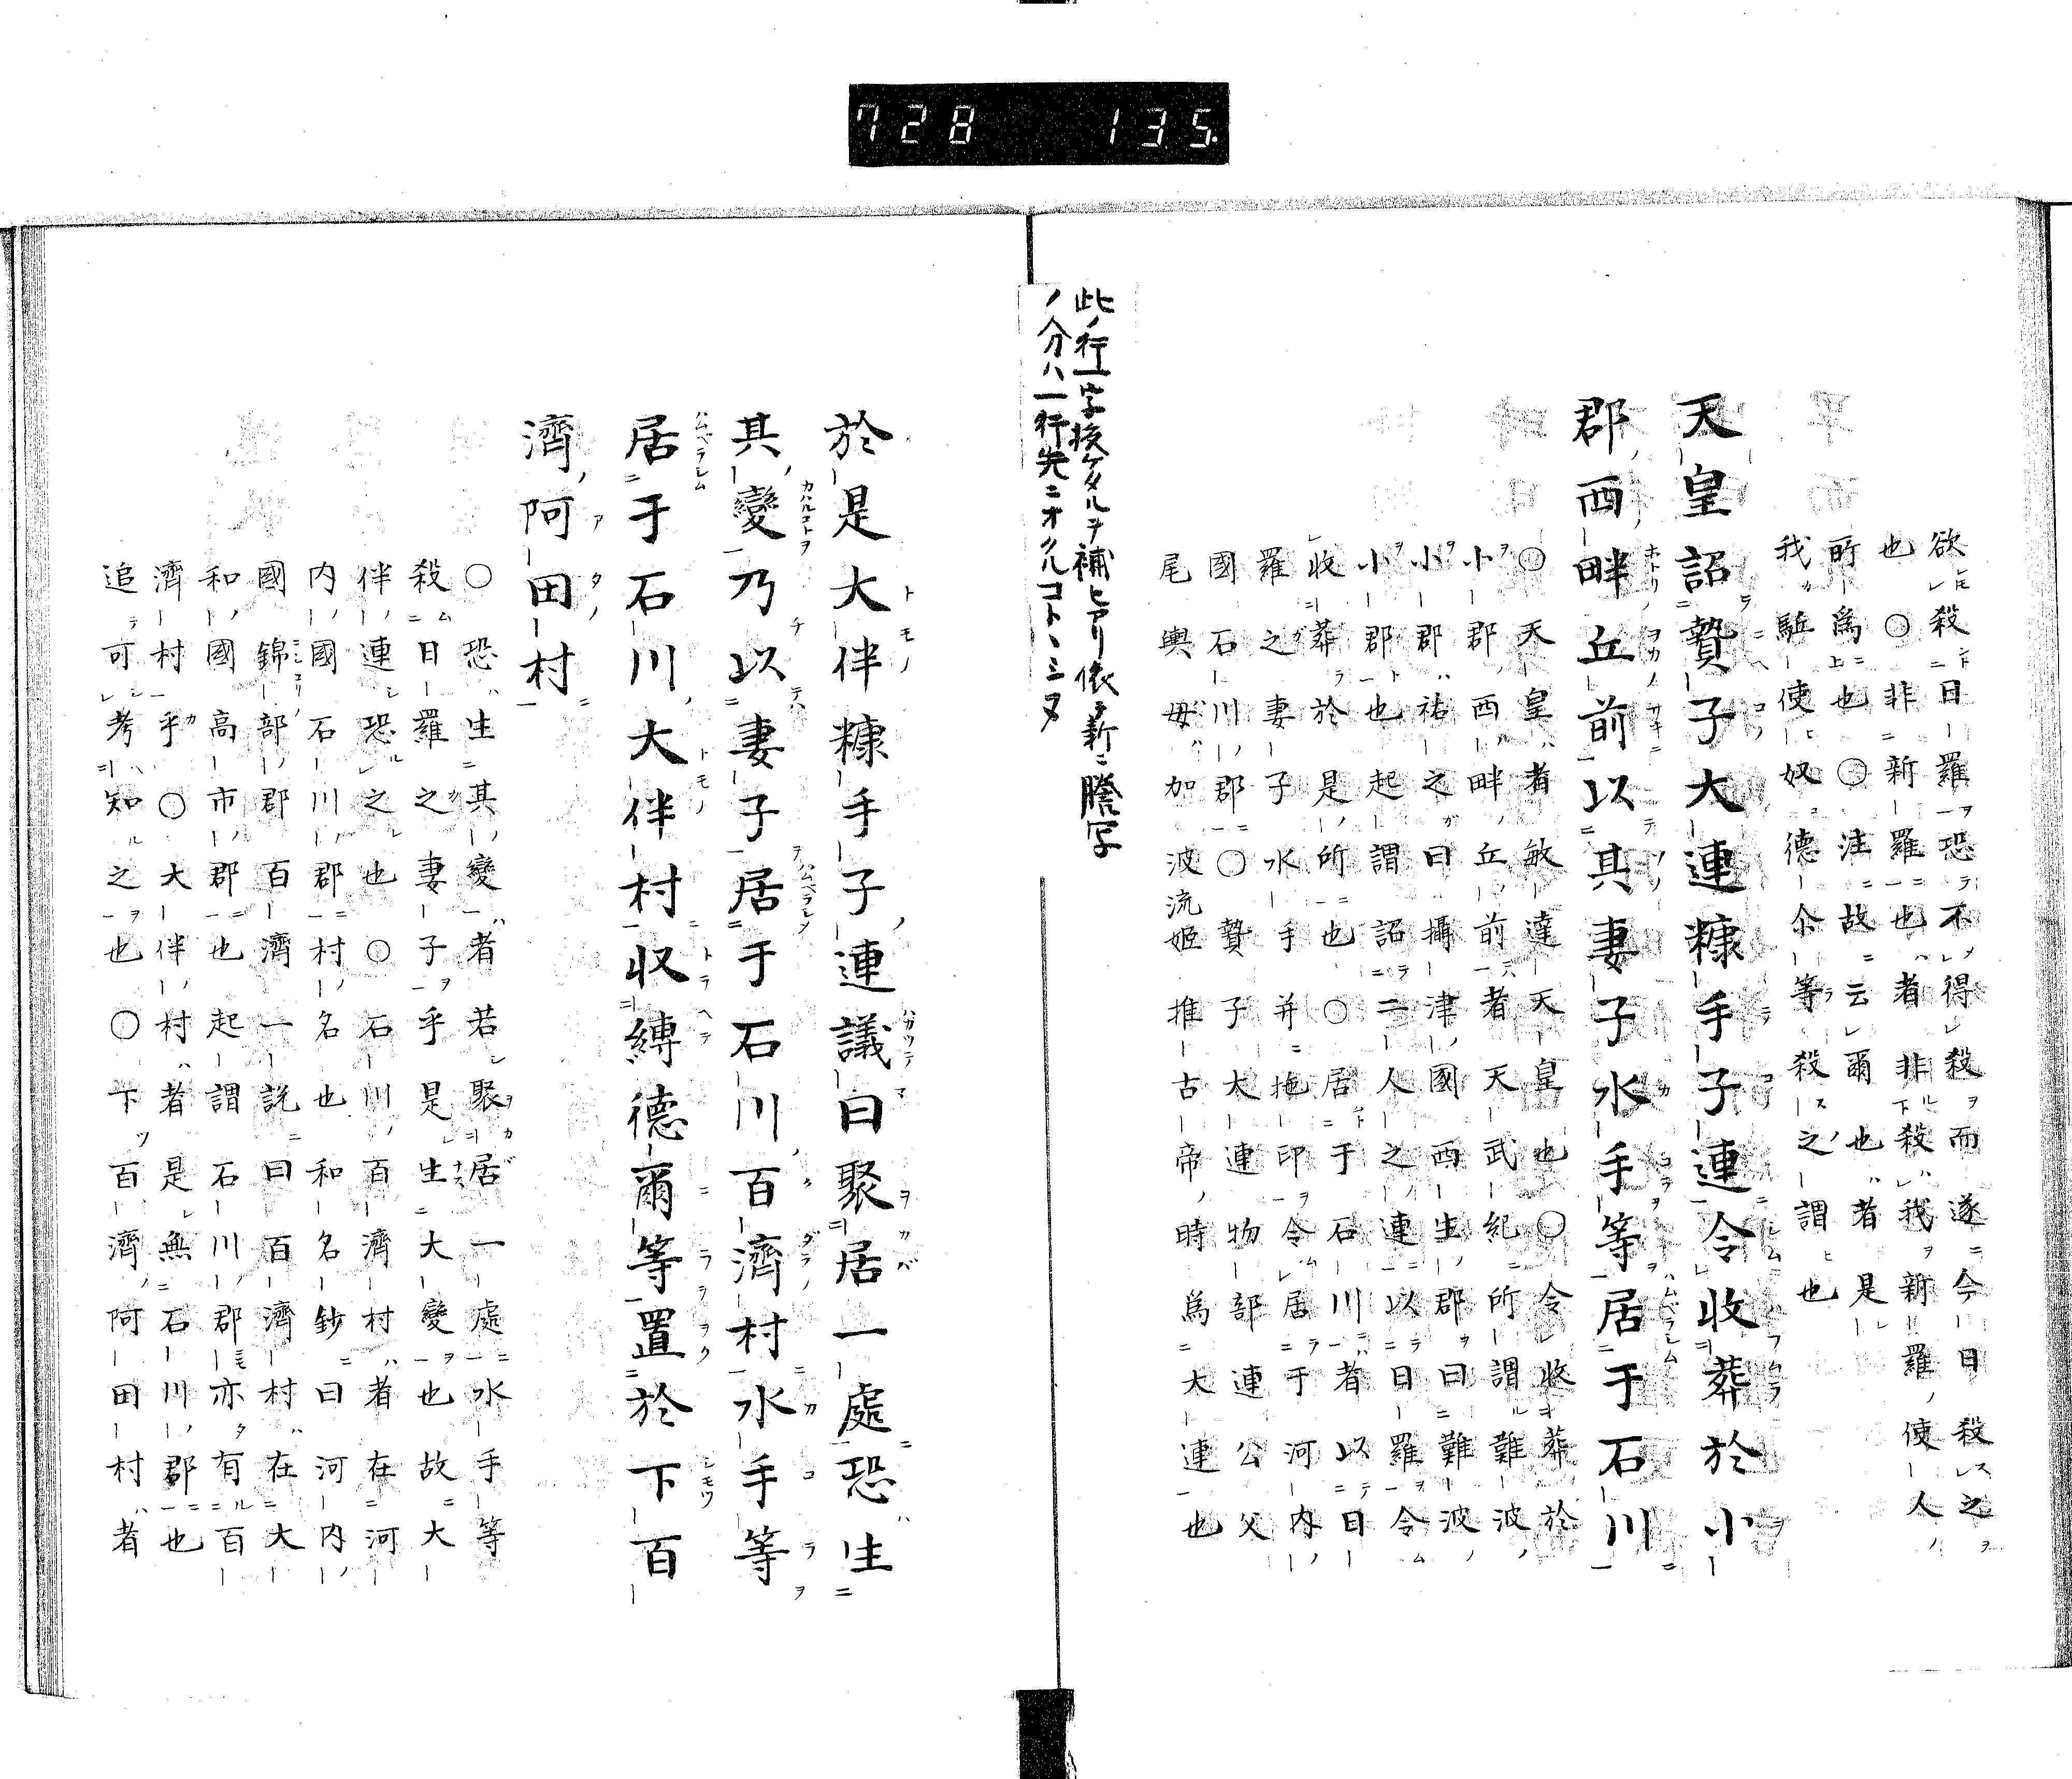 728 135
欲殺日羅恐不得殺而遂今日殺之
也○非新羅也者非殺我新羅使人
所為也○注故云爾也者是
我駈使奴德尒等殺之謂也
天皇詔贄子大連糠手子連令收葬於小
郡西畔丘前以其妻子水手等居于石川
○天皇者敏達天皇也○令收葬於
小郡西畔丘前者天武紀所謂難波
小郡祐之曰攝津國西生郡曰難波
小郡也起謂詔二人之連以日羅令
收葬於是所也○居于石川者以日
羅之妻子水手并拖印令居于河內
國石川郡○贄子大連物部連公父
尾輿母加波流姬推古帝時為大連也
此ノ行一字挍ケタルヲ補ヒアリ依テ新ニ謄写
ノ分ハ一行先ニオクルコトヽミヌ
於是大伴糠手子連議曰聚居一處恐生
其變乃以妻子居于石川百濟村水手等
居于石川大伴村収縛德爾等置於下百
濟阿田村
○恐生其變者若聚居一處水手等
殺日羅之妻子乎是生大變也故大
伴連恐之也○石川百濟村者在河
内國石川郡村名也和名鈔曰河内
國錦部郡百濟一説曰百濟村在大
和國高市郡也起謂石川郡亦有百
濟村乎○大伴村者是無石川郡也
追可考知之也○下百濟阿田村者